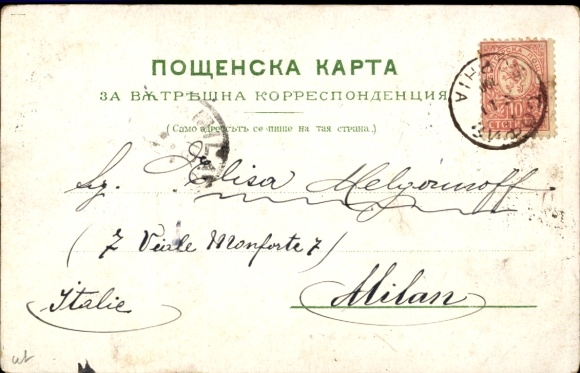 ПОЩЕНСКА КАРТА
ЗА ВѪТРѢШНА КОРРЕСПОНДЕНЦИЯ
(Само адресътъ се пише на тая страна.)
Sg. Elisa Melgounoff
(7 Viale Monforte 7)
Italie
Milan
10